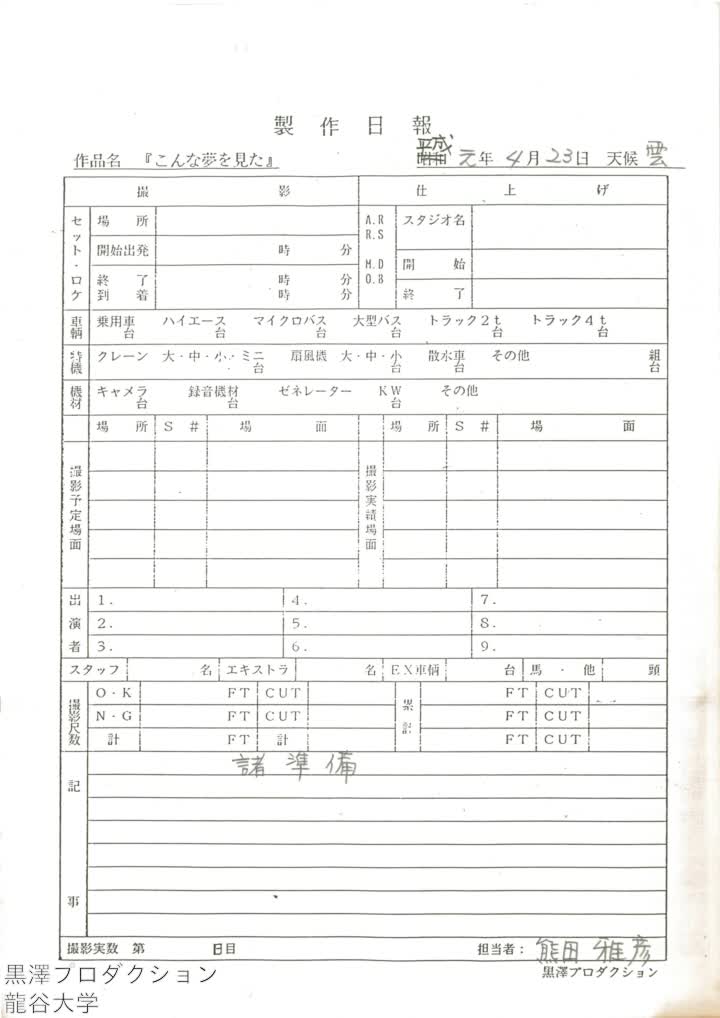 製作日報
作品名 『こんな夢を見た』 平成 元年 4月 23日 天候 雲
撮影 仕上げ
セット・ロケ 場所 A.R R.S M.D O.B スタジオ名
開始出発 時 分 開始
終了 時 分 終了
到着 時 分
車輌 乗用車 台 ハイエース 台 マイクロバス 台 大型バス 台 トラック2t 台 トラック4t 台
特機 クレーン 大・中・小・ミニ 台 扇風機 大・中・小 台 散水車 台 その他 組 台
機材 キャメラ 台 録音機材 台 ゼネレーター KW 台 その他
場所 S# 場面 場所 S# 場面
撮影予定場面 撮影実績場面
出演者
1. 4. 7.
2. 5. 8.
3. 6. 9.
スタッフ 名 エキストラ 名 EX車輌 台 馬・他 頭
撮影尺数 累計
O・K FT CUT FT CUT
N・G FT CUT FT CUT
計 FT 計 FT CUT
諸準備
記事
撮影実数 第 日目 担当者: 熊田雅彦
黒澤プロダクション
黒澤プロダクション
龍谷大学